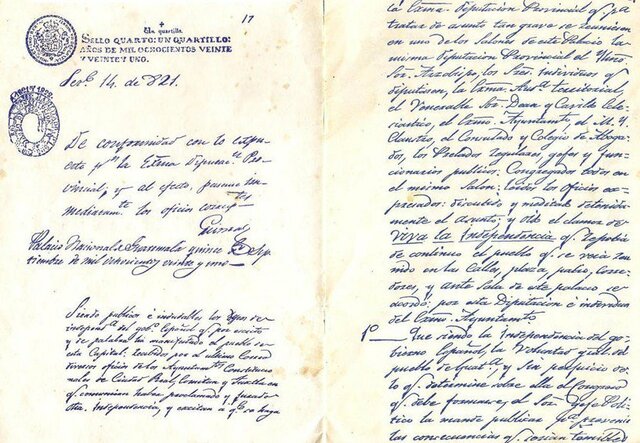 17
SELLO QUARTO: UN QUARTILLO:
AÑOS DE MIL OCHOCIENTOS VEINTE
Y VEINTE Y UNO.
14. de 821.
De conformidad con lo
la Exma Pro-
vincial, y al efecto, pasense in-
los oficios
Palacio Nacional de Guatemala quince de Sep-
tiembre de mil ochocientos veinte y uno
Siendo publicos e indudables los deseos de
independ.ª del gob.º Español q. por escrito
y de palabra ha manifestado el pueblo de
esta Capital: Recibidos por el ultimo Correo
diversos oficios de los Ayuntam.tos Constitucio-
nales de Ciudad Real, Comitan y Tuxtla en
q. comunican haber proclamado y jurado
dha. independencia, y excitan a q. se haga
la Exma. Diputacion Provincial q. p.ª
tratar de asunto tan grave se reuniesen
en uno de los Salones de este Palacio la
misma Diputacion Provincial, el Illmo
Sor. Arzobispo, los Sres. individuos q.
diputasen, la Exma. Aud.ª territorial,
el Venerable Sor. Dean y Cavildo Ecle-
siastico, el Exmo. Ayuntam.to, el M. Y.
Claustro, el Consulado y Colegio de Aboga-
dos, los Prelados regulares, gefes y fun-
cionarios publicos: Congregados todos en
el mismo Salon: leidos los oficios ex-
presados: discutido y meditado detenida-
mente el Asunto; y oido el clamor de
Viva la Independencia q. repetia
de continuo el pueblo q. se veia reu-
nido en las Calles, plaza, patio, corre-
dores, y ante sala de este palacio se
acordó: por esta Diputacion e individuos
del Exmo. Ayuntam.to:
1º Que siendo la Independencia del go-
bierno Español, la Voluntad gral. del
pueblo de Guat.ª, y sin perjuicio de
lo q. determine sobre ella el Congreso
q. debe formarse, el Sor. Gefe Poli-
tico la mande publicar p.ª prevenir
las consecuencias q. serian temibles